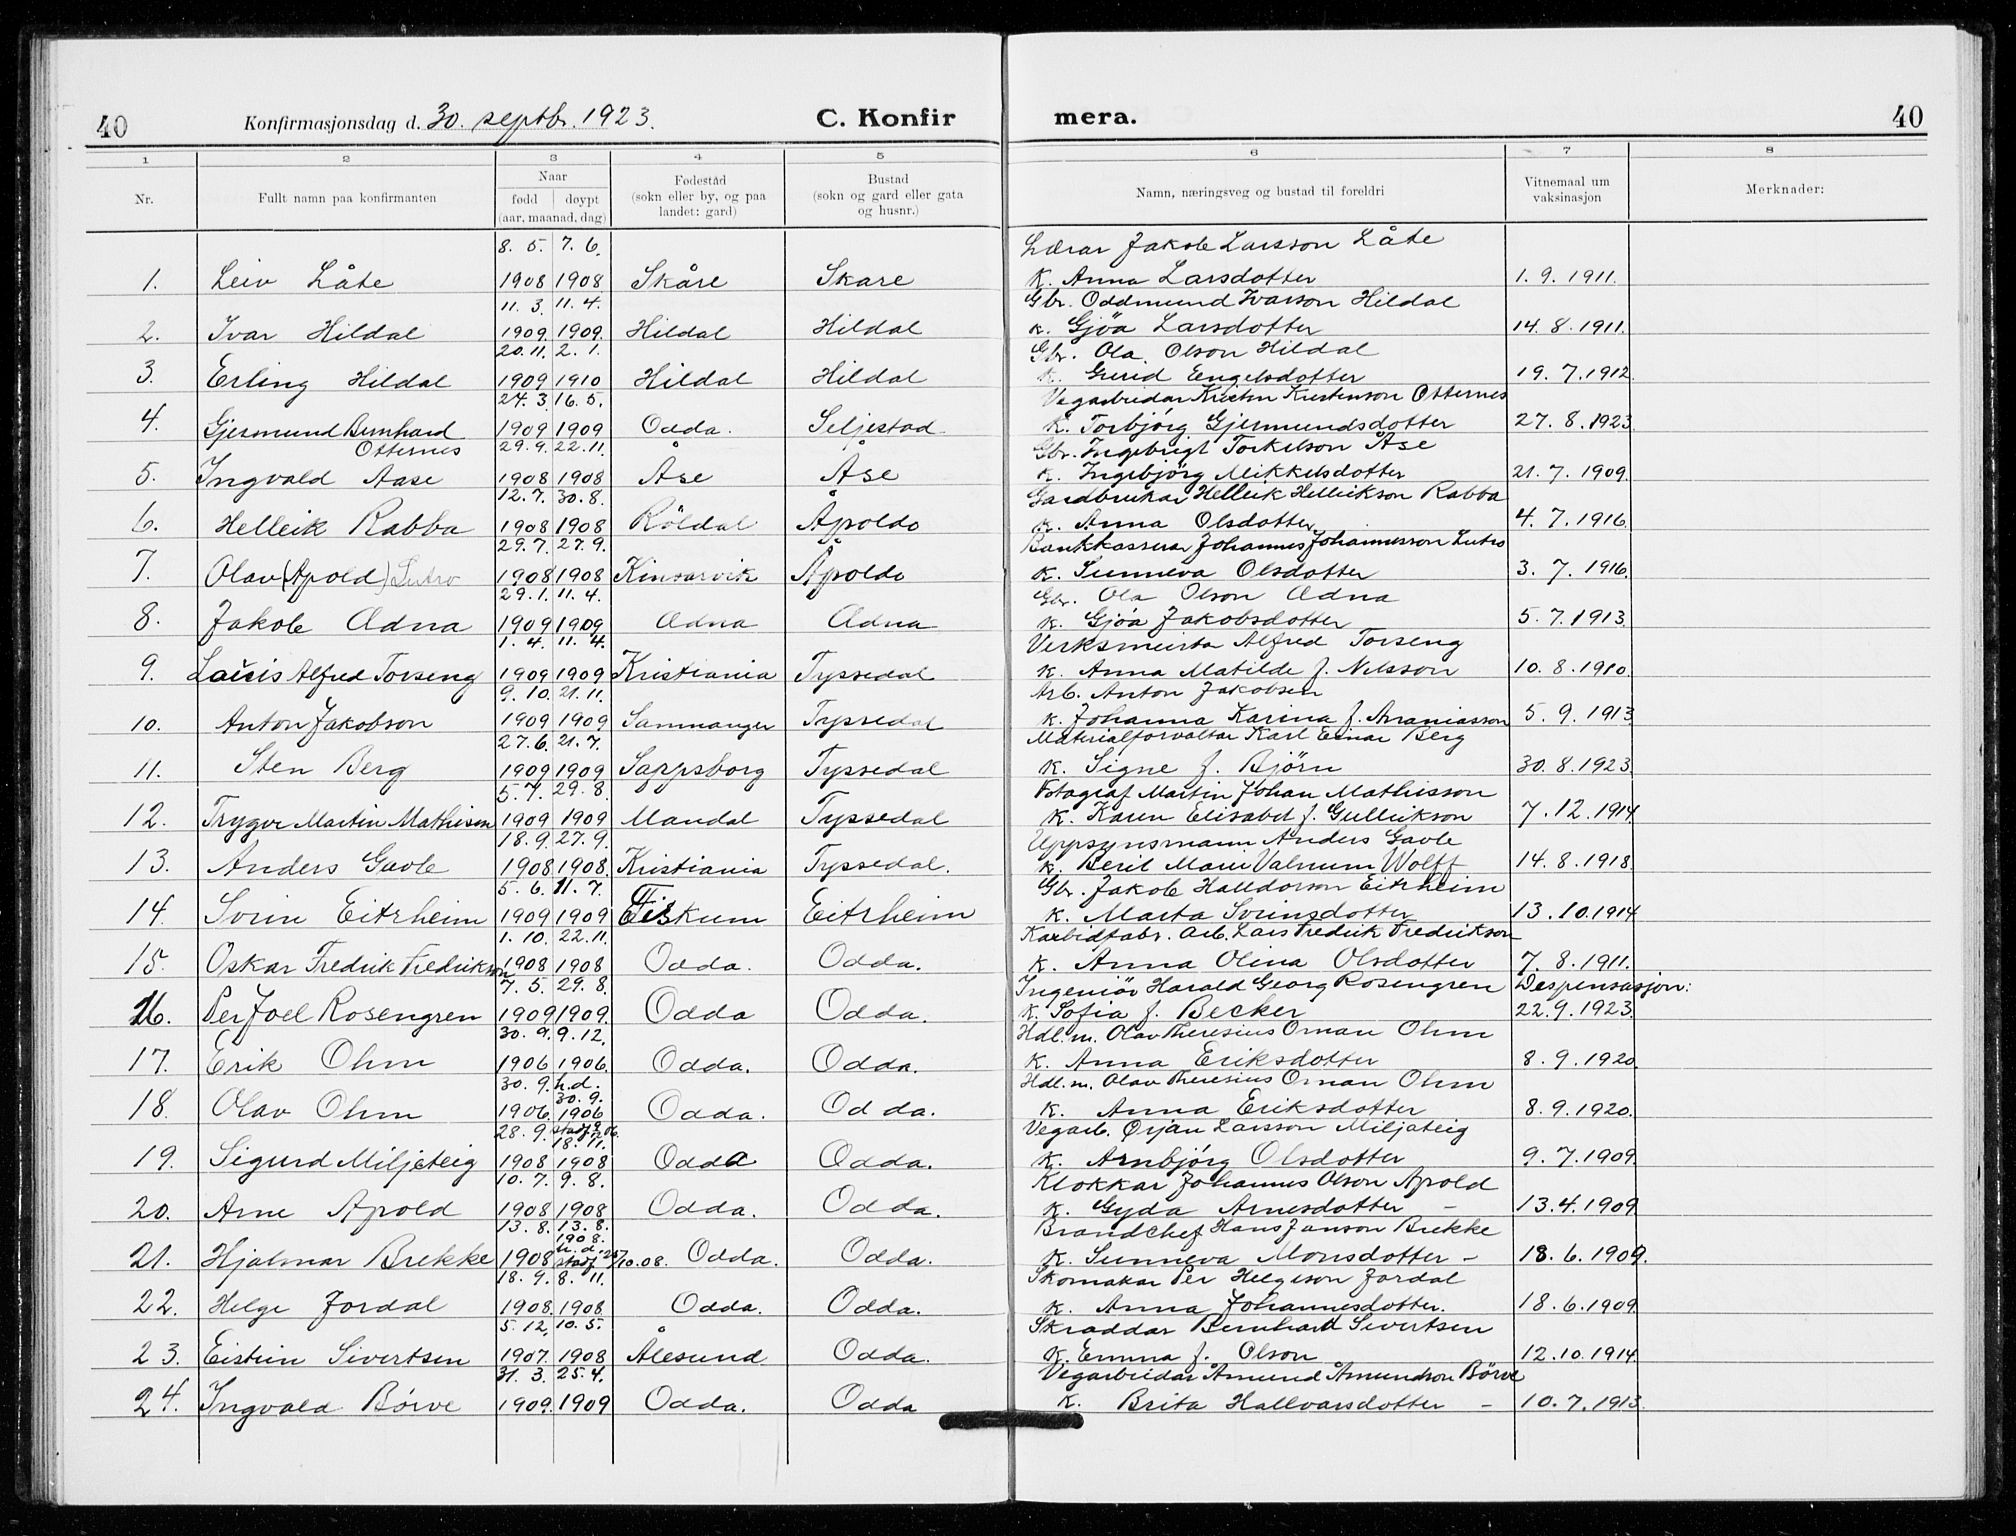 40 Konfirmasjonsdag d. 30. septbr. 1923. C. Konfir mera. 40
1 2 3 4 5 6 7 8
Nr. Fullt namn paa konfirmanten Naar fødd døypt (aar, maanad, dag) Fødeståd (sokn eller by, og paa landet: gard) Bustad (sokn og gard eller gata og husnr.) Namn, næringsveg og bustad til foreldri Vitnemaal um vaksinasjon Merknader:
8. 5. 7. 6. Lærar Jakob Larsson Låte
1. Leiv Låte 1908 1908 Skåre Skare K. Anna Larsdotter 1. 9. 1911.
11. 3. 11. 4. Gbr. Oddmund Ivarson Hildal
2. Ivar Hildal 1909. 1909. Hildal Hildal K. Gjöa Larsdotter 14. 8. 1911.
20. 11. 2. 1. Gbr. Ola Olson Hildal
3. Erling Hildal 1909 1910 Hildal Hildal K. Gurid Engelsdotter 19. 7. 1912.
24. 3. 16. 5. Vegarbeidar Kristen Kristenson Otternes
4. Gjermund Bernhard Otternes 1909 1909 Odda. Seljestad K. Torbjörg Gjermundsdotter 27. 8. 1923
29. 9. 22. 11. Gbr. Ingebrigt Torkelson Åse
5. Ingvald Aase 1908 1908 Åse Åse K. Ingebjörg Mikkelsdotter 21. 7. 1909.
12. 7. 30. 8. Gardbrukar Helleik Helleikson Rabba
6. Helleik Rabba 1908 1908 Röldal Åpoldo K. Anna Olsdotter 4. 7. 1916.
29. 7. 27. 9. Bankkasserar Johannes Johannesson Lutro
7. Olav (Apold) Lutro 1908 1908 Kinsarvik Åpoldo K. Sunneva Olsdotter 3. 7. 1916.
29. 1. 11. 4. Gbr. Ola Olson Ædna
8. Jakob Ædna 1909 1909 Ædna Ædna K. Gjöa Jakobsdotter 5. 7. 1913.
1. 4. 11. 4. Verksmeistar Alfred Torseng
9. Louis Alfred Torseng 1909 1909 Kristiania Tyssedal K. Anna Matilde f. Nilsson 10. 8. 1910.
9. 10. 21. 11. Arb. Anton Jakobsen
10. Anton Jakobson 1909 1909 Sammanger Tyssedal K. Johanna Karina f. Ananiasson 5. 9. 1913
27. 6. 21. 7. Materialforvaltar Karl Einar Berg
11. Sten Berg 1909 1909 Sappsborg Tyssedal K. Signe f. Björn 30. 8. 1923.
5. 7. 29. 8. Fotograf Martin Johan Mathisson
12. Trygve Martin Mathisen 1909 1909 Mandal Tyssedal K. Karen Elisabet f. Gullikson 7. 12. 1914
18. 9. 27. 9. Uppsynsmann Anders Gavle
13. Anders Gavle 1908 1908. Kristiania Tyssedal. K. Beril Marie Wolff 14. 8. 1918.
5. 6. 11. 7. Gbr. Jakob Halldorson Eitrheim
14. Svein Eitrheim 1909 1909 Eiskum Eitrheim K. Marta Sveinsdotter 13. 10. 1914
1. 10. 22. 11. Karbidfabr. Arb. Lars Fredrik Fredrikson
15. Oskar Fredrik Fredrikson 1908 1908 Odda. Odda. K. Anna Olina Olsdotter 7. 8. 1911.
7. 5. 29. 8. Ingeniör Harald Georg Rosengren Despensasjon:
16. Per Joel Rosengren 1909 1909. Odda Odda. K. Sofia f. Becker 22. 9. 1923.
30. 9. 9. 12. Hdl. m. Olav Theresius Ornan Ohm
17. Erik Ohm 1906 1906. Odda. Odda. K. Anna Eriksdotter 8. 9. 1920
30. 9. h.d. 30. 9. Hdl. m. Olav Theresius Ornan Ohm
18. Olav Ohm 1906. 1906 Odda. Odda. K. Anna Eriksdotter 8. 9. 1920.
28. 9. 18. 11. Vegarb. Ørjan Larsson Miljateig
19. Sigurd Miljateig 1908 1908 Odda Odda. K. Arnbjörg Olsdotter 9. 7. 1909.
10. 7. 9. 8. Klokkar Johannes Olson Apold
20. Arne Apold 1908 1908 Odda. Odda. K. Gyda Arnesdotter – 13. 4. 1909
13. 8. 13. 8. 1908. Brandchef Hans Janson Brekke
21. Hjalmar Brekke 1908 h.d. stadf. 25/10.08. Odda. Odda. K. Sunneva Monsdotter – 18. 6. 1909.
18. 9. 8. 11. Skomakar Per Helgeson Jordal
22. Helge Jordal 1908. 1908 Odda. Odda. K. Anna Johannesdotter. 18. 6. 1909
5. 12. 10. 5. Skraddar Bernhard Sivertsen
23. Eistein Sivertsen 1907. 1908 Ålesund Odda. K. Emma f. Olson 12. 10. 1914
31. 3. 25. 4. Vegarbeidar Åmund Åmundson Börve
24. Ingvald Börve 1909. 1909 Odda. Odda K. Brita Hallvarsdotter – 10. 7. 1913.